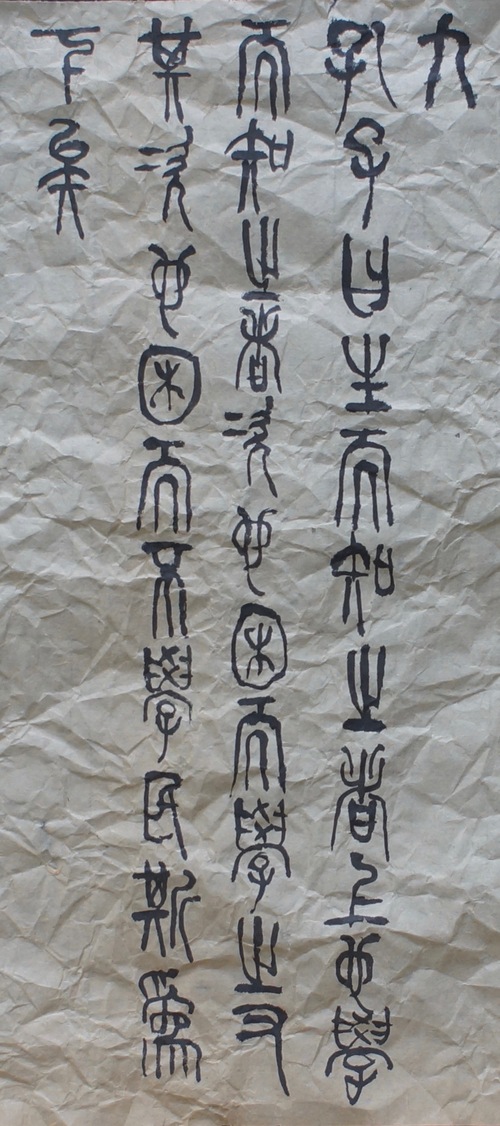 九
孔子曰生而知之者上也學
而知之者次也困而學之又
其次也困而不學民斯爲
下矣